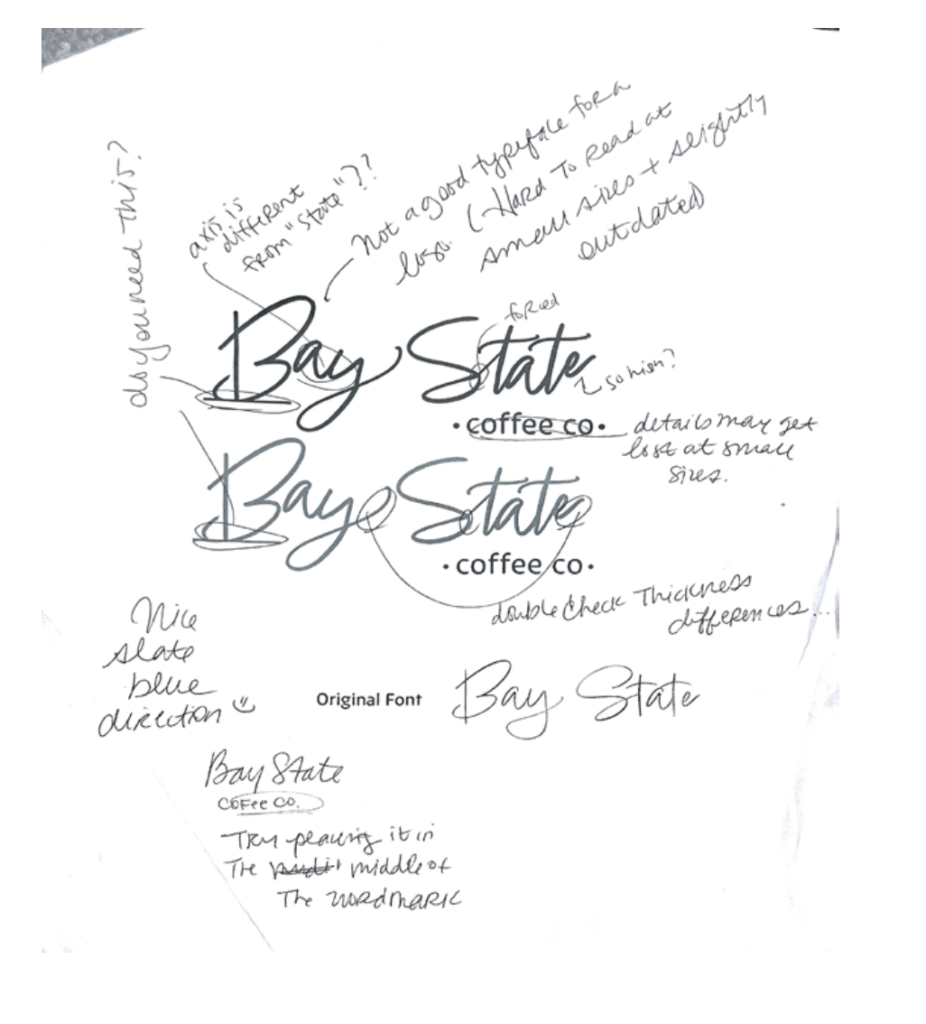 do you need this?
axis is
different
from "State"??
Not a good typeface for a
logo. (Hard To Read at
small sizes + slightly
outdated)
Bay State
forced
so high?
• coffee co •
details may get
lost at small
sizes.
Bay State
• coffee co •
double check Thickness
differences...
Nice
slate
blue
direction
Original Font
Bay State
Bay State
COFFee CO.
Try placing it in
The middle of
The wordmark